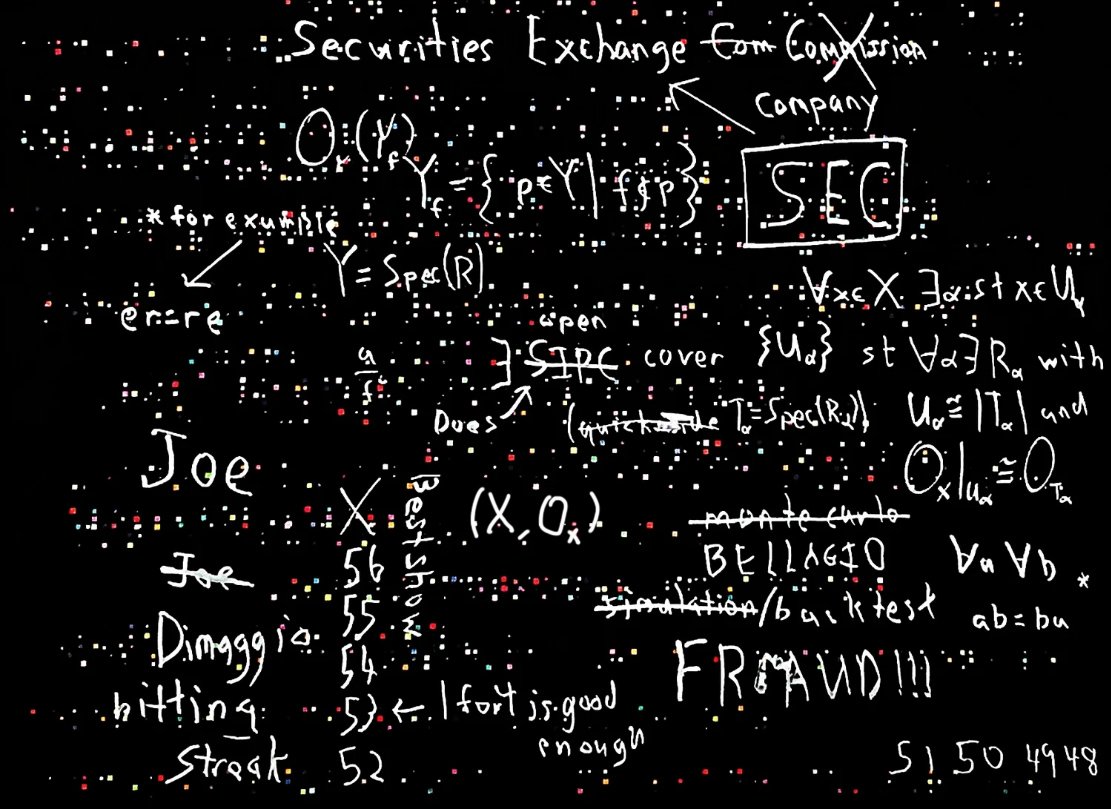 Securities Exchange Com Commission
Company
SEC
O_x(Y_f)
Y_f = { p∈Y | f∉p }
* for example
Y = Spec(R)
∀x∈X ∃α st x∈U_α
e^r = r^e
open
∃ SIPC cover {U_α} st ∀α∃R_α with
a/f^n
Does
(quick aside T_α=Spec(R_α)) U_α≅|T_α| and
O_x|_{U_α} ≅ O_{T_α}
Joe
X
Best show
(X, O_x)
monte carlo
BELLAGIO
∀a ∀b *
Joe
56
simulation/backtest
ab=ba
55
Dimaggio
54
FRAUD!!!
hitting
53 ← 1 fort is good
enough
Streak
52
51 50 49 48